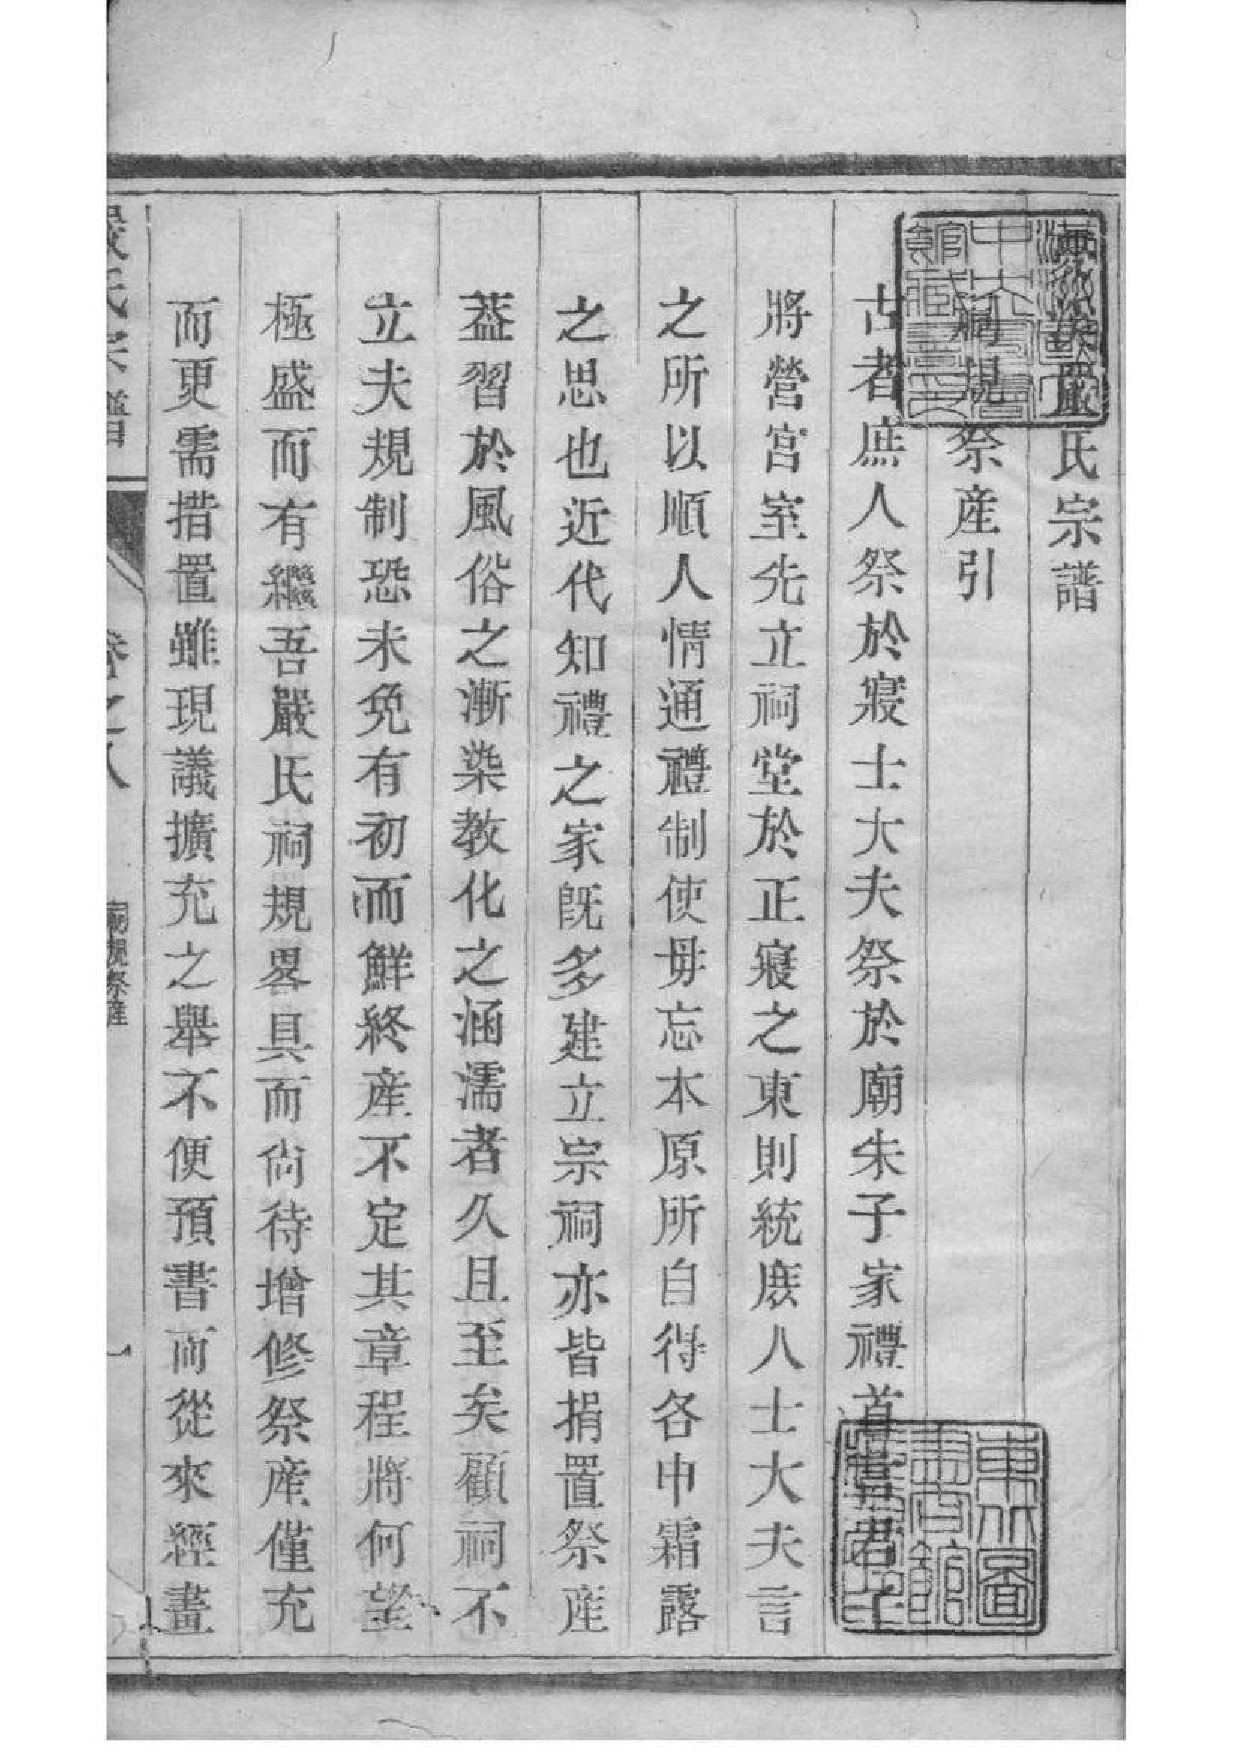 嚴氏宗譜
祠規祭產引
古者庶人祭於寢士大夫祭於廟朱子家禮首言君子
將營宮室先立祠堂於正寢之東則統庶人士大夫言
之所以順人情通禮制使毋忘本原所自得各申霜露
之思也近代知禮之家旣多建立宗祠亦皆捐置祭産
葢習於風俗之漸染教化之涵濡者久且至矣顧祠不
立夫規制恐未免有初而鮮終產不定其章程將何望
極盛而有繼吾嚴氏祠規畧具而尙待增修祭產僅充
而更需措置雖現議擴充之舉不便預書而從來經畫
嚴氏宗譜
卷之八
祠規祭產
一